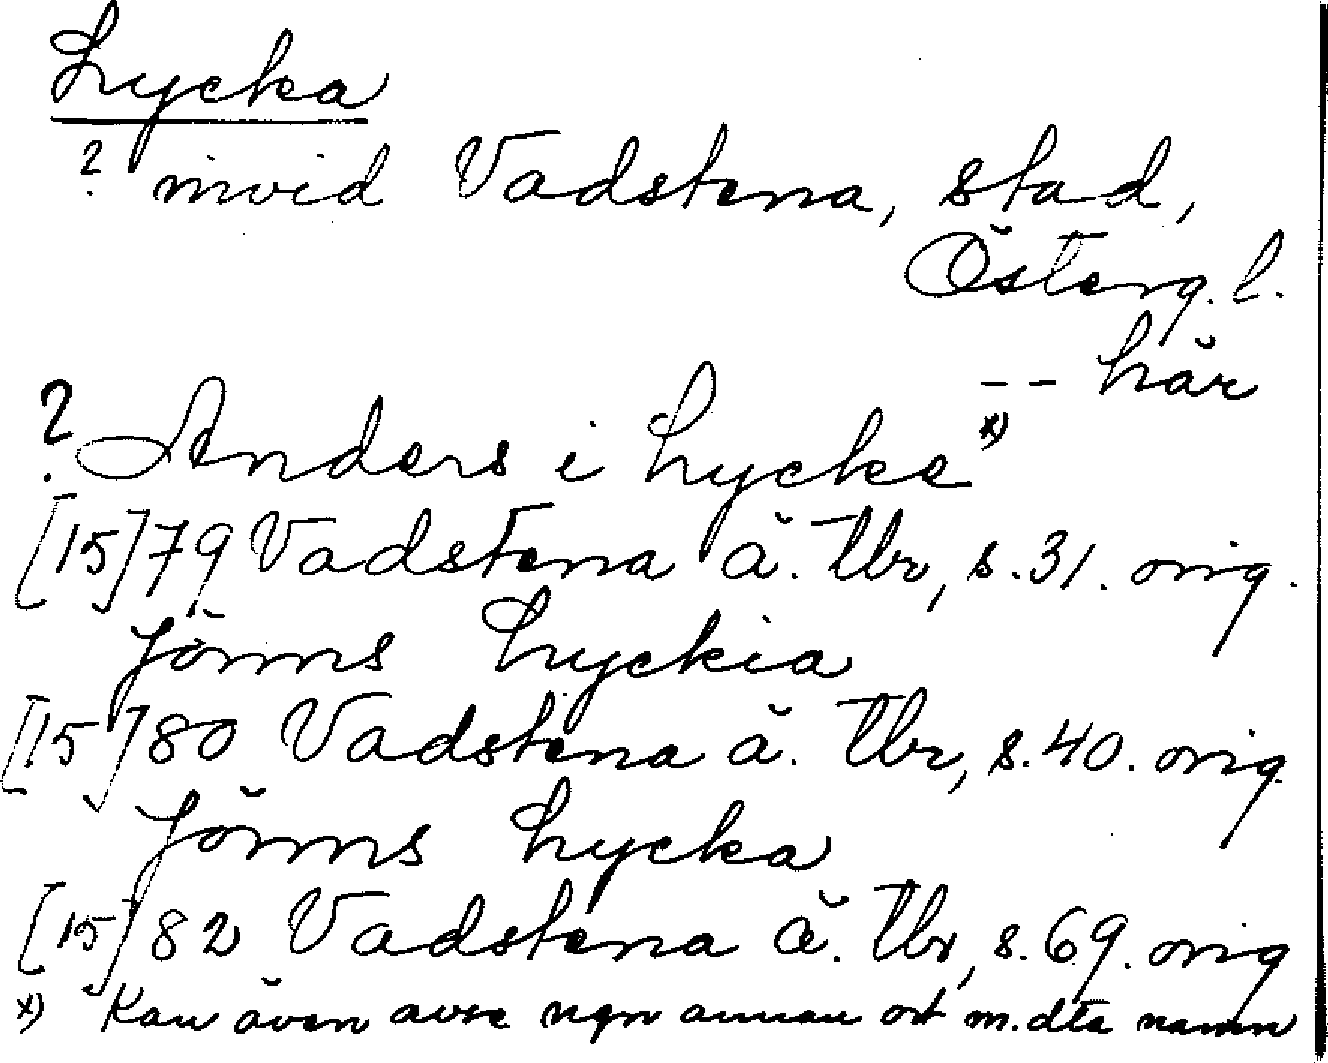 Lycka
? invid Vadstena, stad,
Österg. l.
-- här
? Anders i Lycke x)
[15]79 Vadstena ä. Tbr, s. 31. orig.
Jöns Lyckia
[15]80 Vadstena ä. Tbr, s. 40. orig
Jöns Lycka
[15]82 Vadstena ä. Tbr, s. 69. orig
x) Kan även avse ngn annan ort m. dta namn